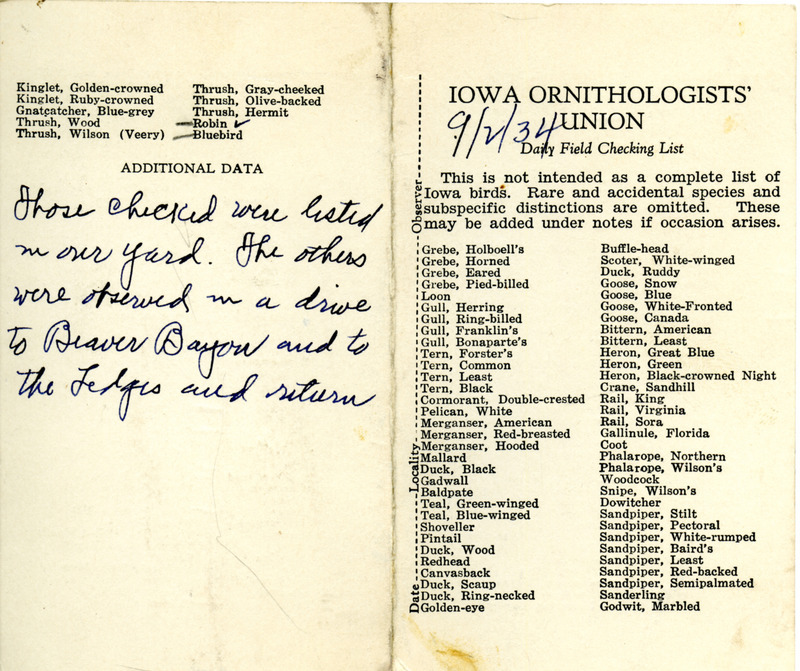 Kinglet, Golden-crowned
Kinglet, Ruby-crowned
Gnatcatcher, Blue-grey
Thrush, Wood
Thrush, Wilson (Veery)
Thrush, Gray-cheeked
Thrush, Olive-backed
Thrush, Hermit
Robin ✓
Bluebird
ADDITIONAL DATA
Those checked were listed
in our yard. The others
were observed in a drive
to Beaver Bayou and to
the Ledges and return
Date Locality Observer
IOWA ORNITHOLOGISTS'
UNION
9/2/34
Daily Field Checking List
This is not intended as a complete list of
Iowa birds. Rare and accidental species and
subspecific distinctions are omitted. These
may be added under notes if occasion arises.
Grebe, Holboell's
Grebe, Horned
Grebe, Eared
Grebe, Pied-billed
Loon
Gull, Herring
Gull, Ring-billed
Gull, Franklin's
Gull, Bonaparte's
Tern, Forster's
Tern, Common
Tern, Least
Tern, Black
Cormorant, Double-crested
Pelican, White
Merganser, American
Merganser, Red-breasted
Merganser, Hooded
Mallard
Duck, Black
Gadwall
Baldpate
Teal, Green-winged
Teal, Blue-winged
Shoveller
Pintail
Duck, Wood
Redhead
Canvasback
Duck, Scaup
Duck, Ring-necked
Golden-eye
Buffle-head
Scoter, White-winged
Duck, Ruddy
Goose, Snow
Goose, Blue
Goose, White-Fronted
Goose, Canada
Bittern, American
Bittern, Least
Heron, Great Blue
Heron, Green
Heron, Black-crowned Night
Crane, Sandhill
Rail, King
Rail, Virginia
Rail, Sora
Gallinule, Florida
Coot
Phalarope, Northern
Phalarope, Wilson's
Woodcock
Snipe, Wilson's
Dowitcher
Sandpiper, Stilt
Sandpiper, Pectoral
Sandpiper, White-rumped
Sandpiper, Baird's
Sandpiper, Least
Sandpiper, Red-backed
Sandpiper, Semipalmated
Sanderling
Godwit, Marbled